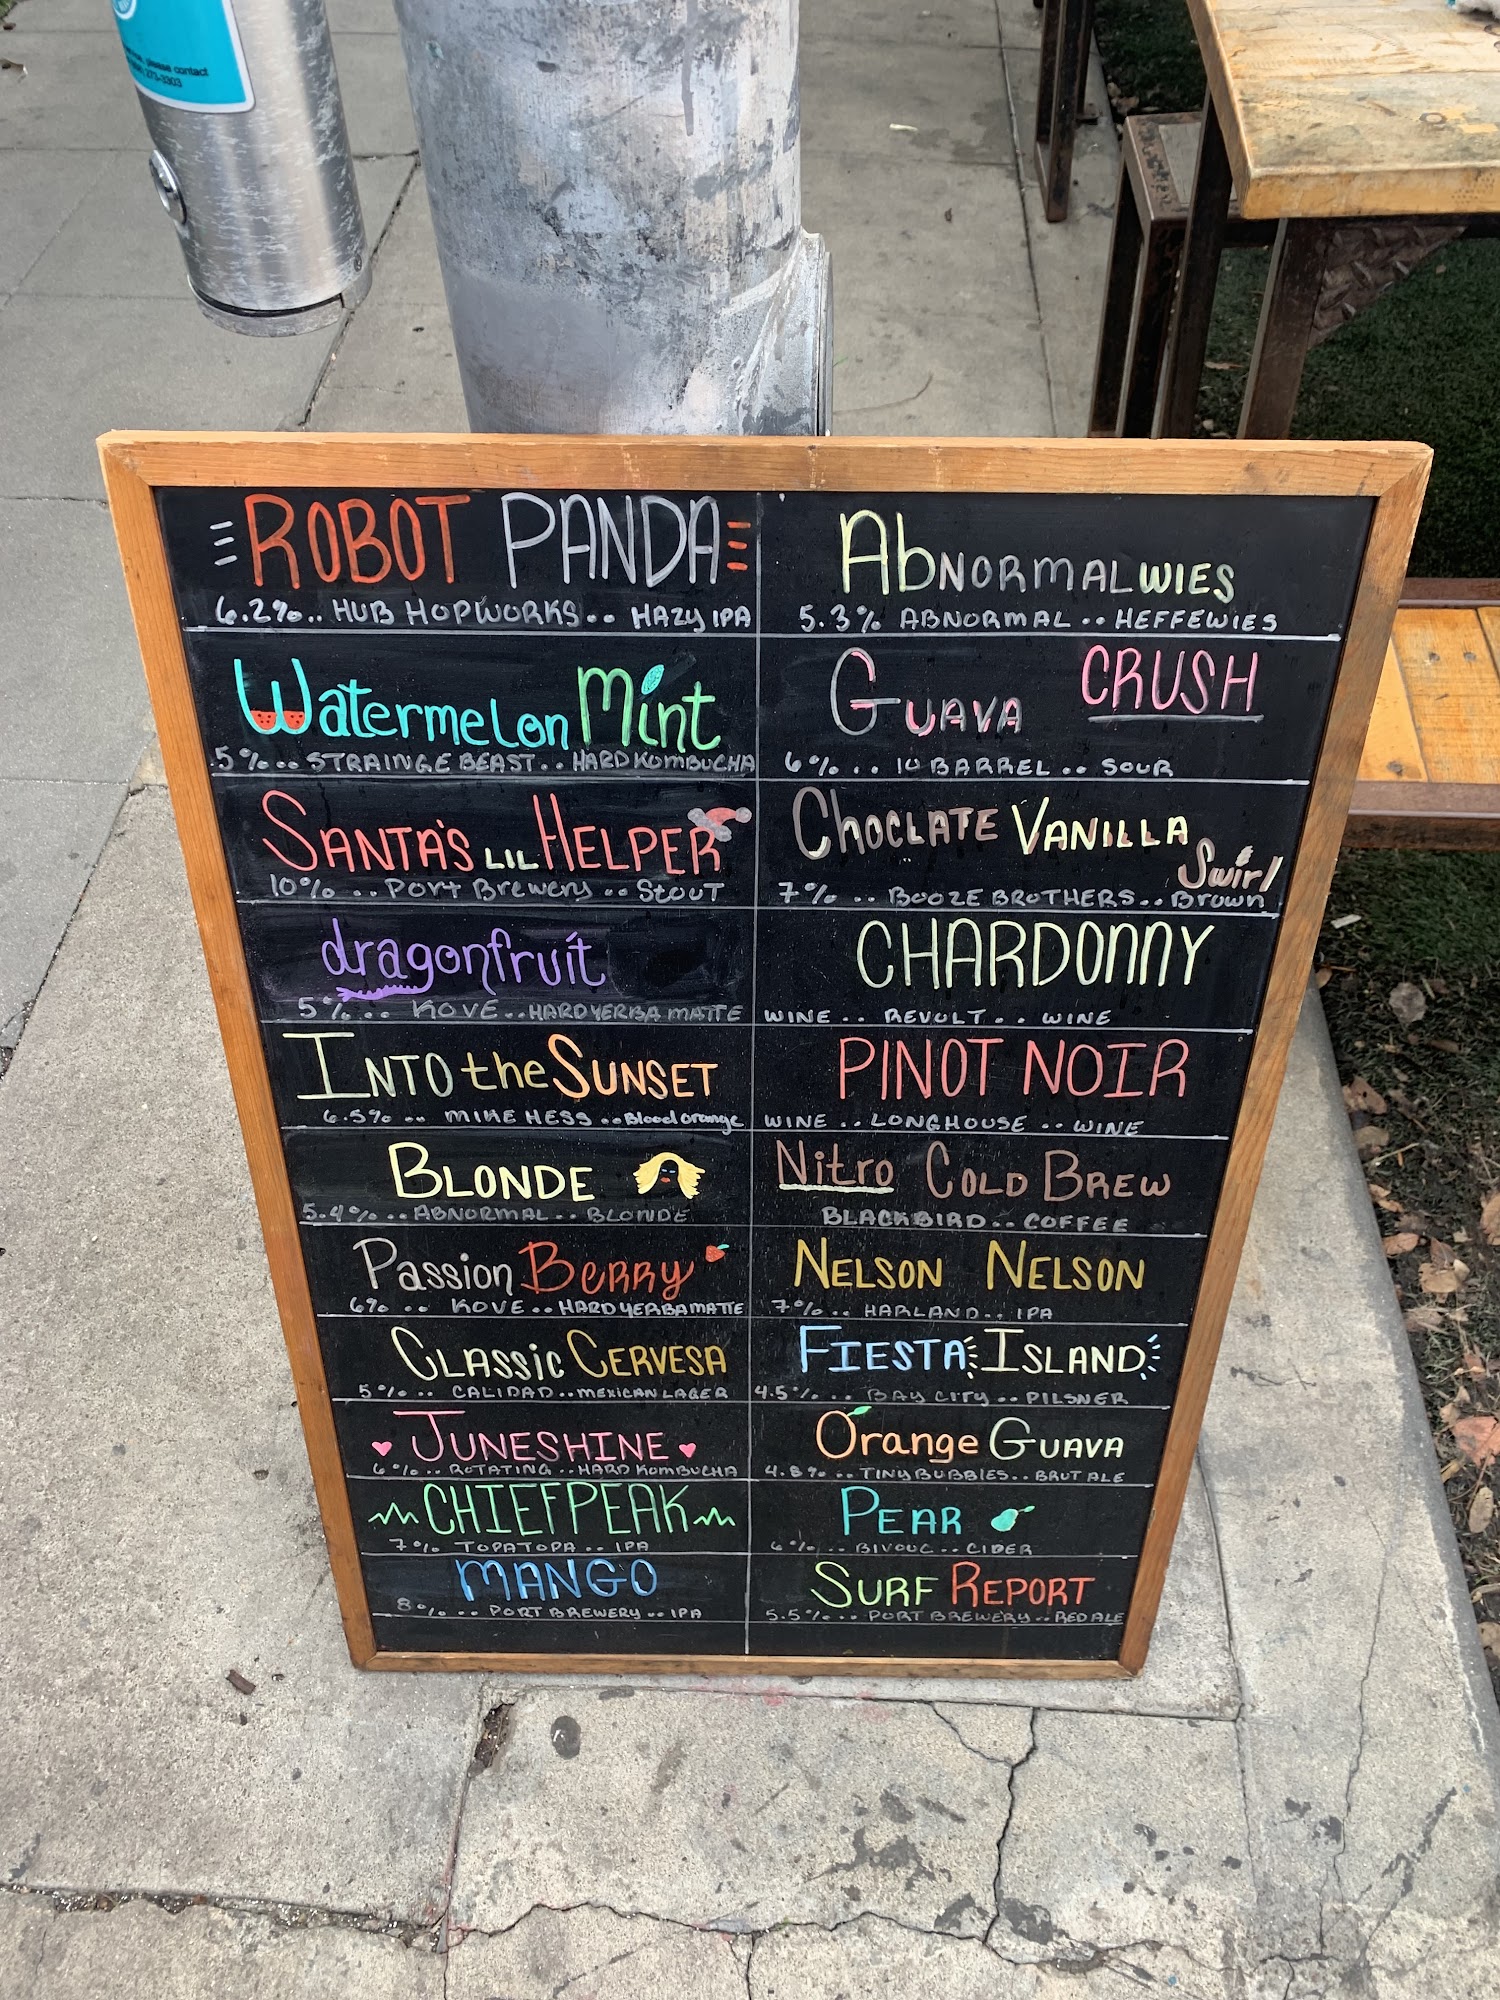 please contact
273-3303
ROBOT PANDA
6.2%.. HUB HOPWORKS.. HAZY IPA
Watermelon Mint
5%... STRAINGE BEAST.. HARD KOMBUCHA
SANTA'S LIL HELPER
10%... Port Brewery.. Stout
dragonfruit
5%... KOVE.. HARD YERBA MATTE
INTO the SUNSET
6.5%... MIKE HESS... Blood orange
BLONDE
5.4%... ABNORMAL.. BLONDE
Passion Berry
6%... KOVE.. HARD YERBA MATTE
CLASSic CERVESA
5%... CALIDAD.. MEXICAN LAGER
JUNESHINE
6%... ROTATING.. HARD KOMBUCHA
CHIEF PEAK
7% TOPA TOPA.. IPA
MANGO
8%... PORT BREWERY... IPA
AbNORMALWIES
5.3% ABNORMAL.. HEFFEWIES
GUAVA CRUSH
6%... 10 BARREL.. SOUR
CHOCLATE VANILLA Swirl
7%... BOOZE BROTHERS.. Brown
CHARDONNY
WINE.. REVOLT.. WINE
PINOT NOIR
WINE.. LONGHOUSE.. WINE
Nitro COLD BREW
BLACKBIRD.. COFFEE
NELSON NELSON
7%... HARLAND.. IPA
FIESTA ISLAND
4.5%... BAY CITY.. PILSNER
Orange GUAVA
4.8%... TINY BUBBLES.. BRUT ALE
PEAR
6%... BIVOUC.. CIDER
SURF REPORT
5.5%... PORT BREWERY.. RED ALE